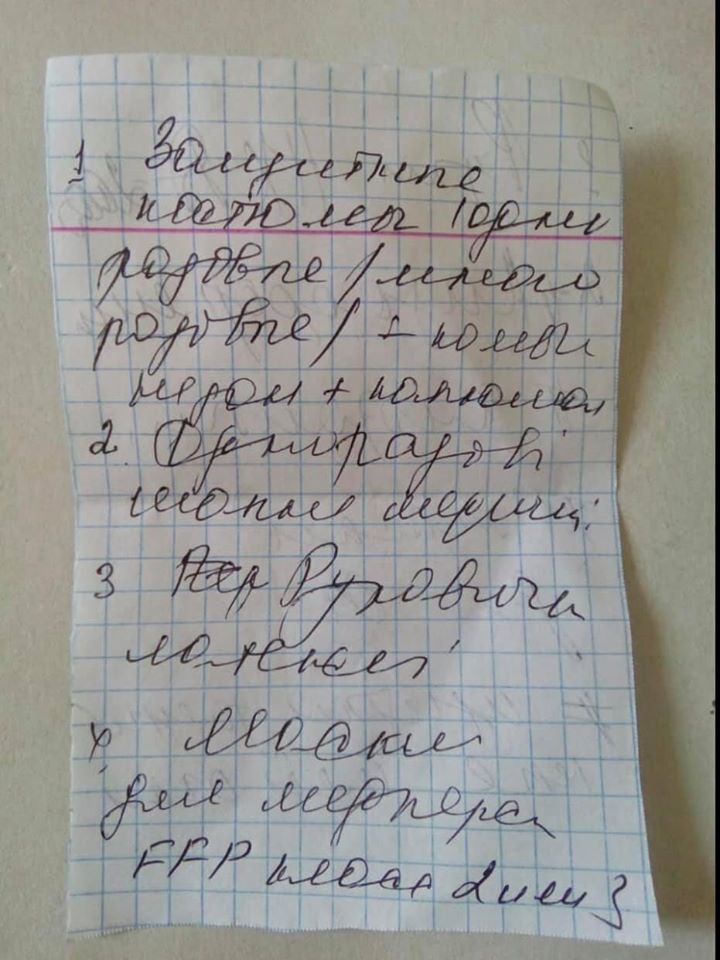 1 Защитные
костюмы 1 одно
разовые / много
разовые / – комби
незон + капюшон
2. Одноразові
шапки медичні.
3 Рукавички
латексні
4. Маски
для медперс
FFP класс 2 или 3